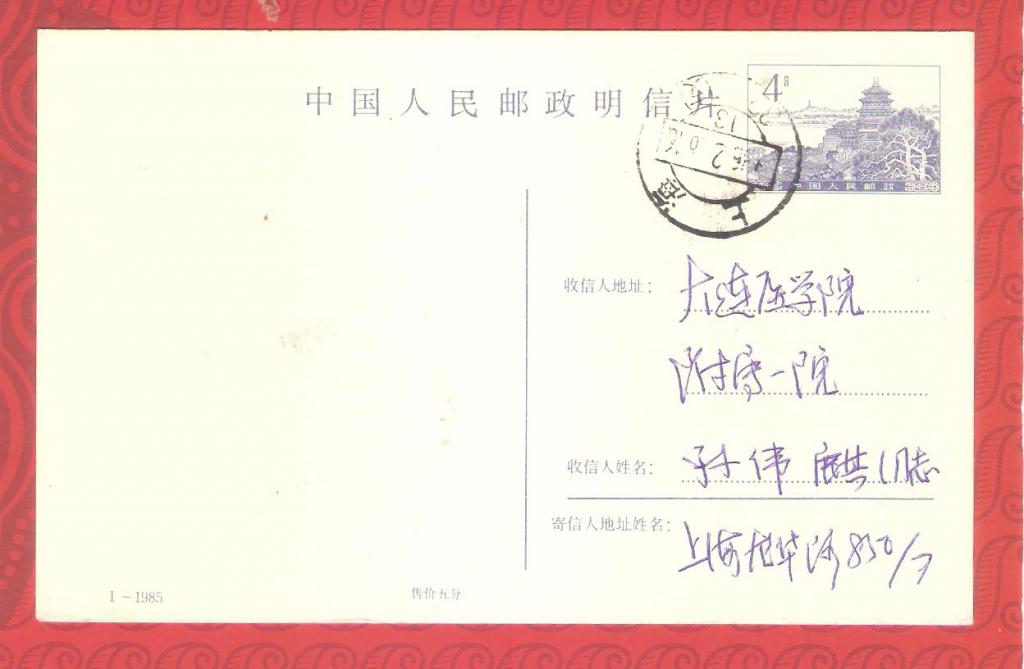 中国人民邮政明信片
4分
中国人民邮政
上海
收信人地址：
大连医学院
附属一院
收信人姓名：
孙伟麒同志
寄信人地址姓名：
上海龙华路850/7
售价五分
I－1985